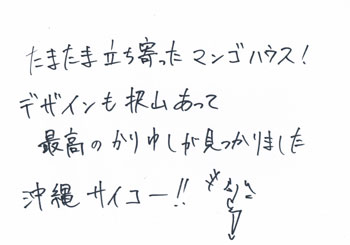 たまたま立ち寄ったマンゴハウス!
デザインも沢山あって
最高のかりゆしが見つかりました
沖縄サイコー!!